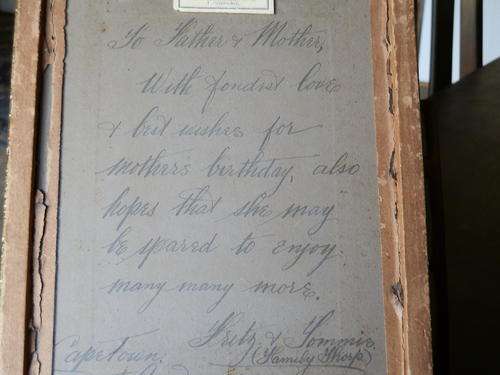 To Father & Mother,
With fondest love
& best wishes for
mothers birthday, also
hopes that she may
be spared to enjoy
many many more.
Fritz & Tommie
Capetown.